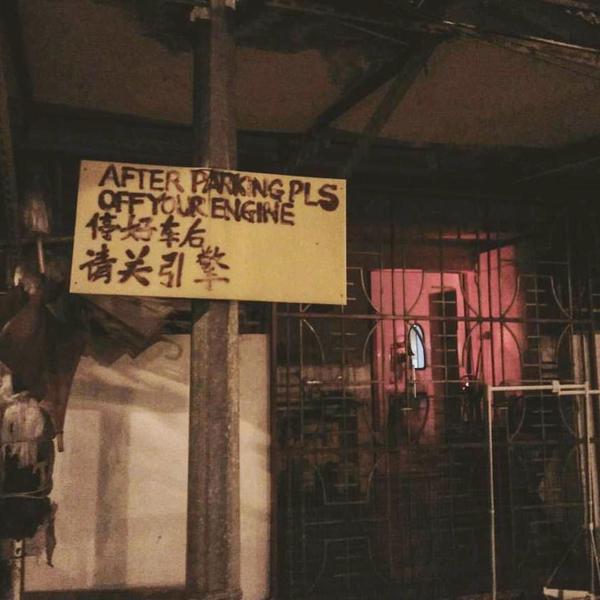 AFTER PARKING PLS
OFF YOUR ENGINE
停好车后
请关引擎